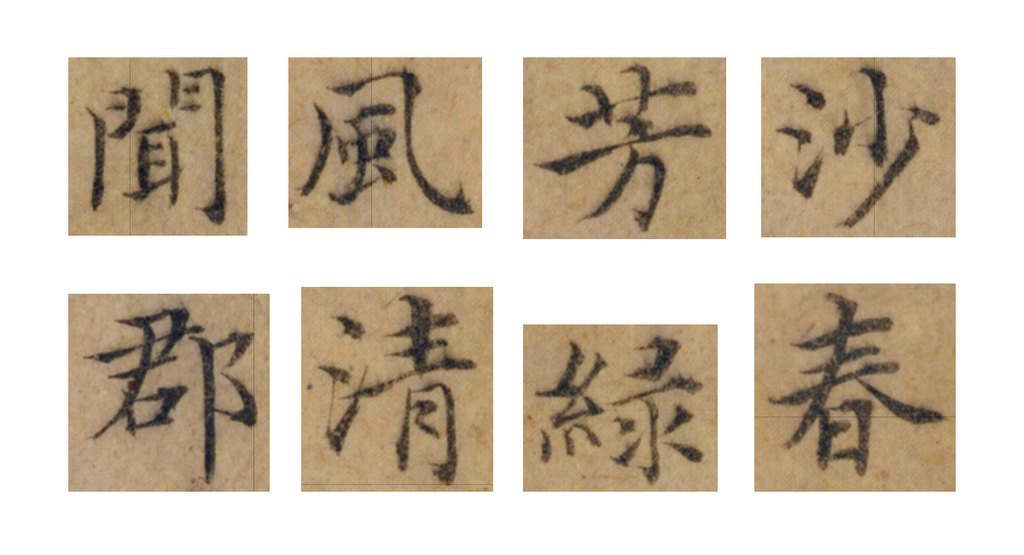 聞風芳沙
郡清綠春